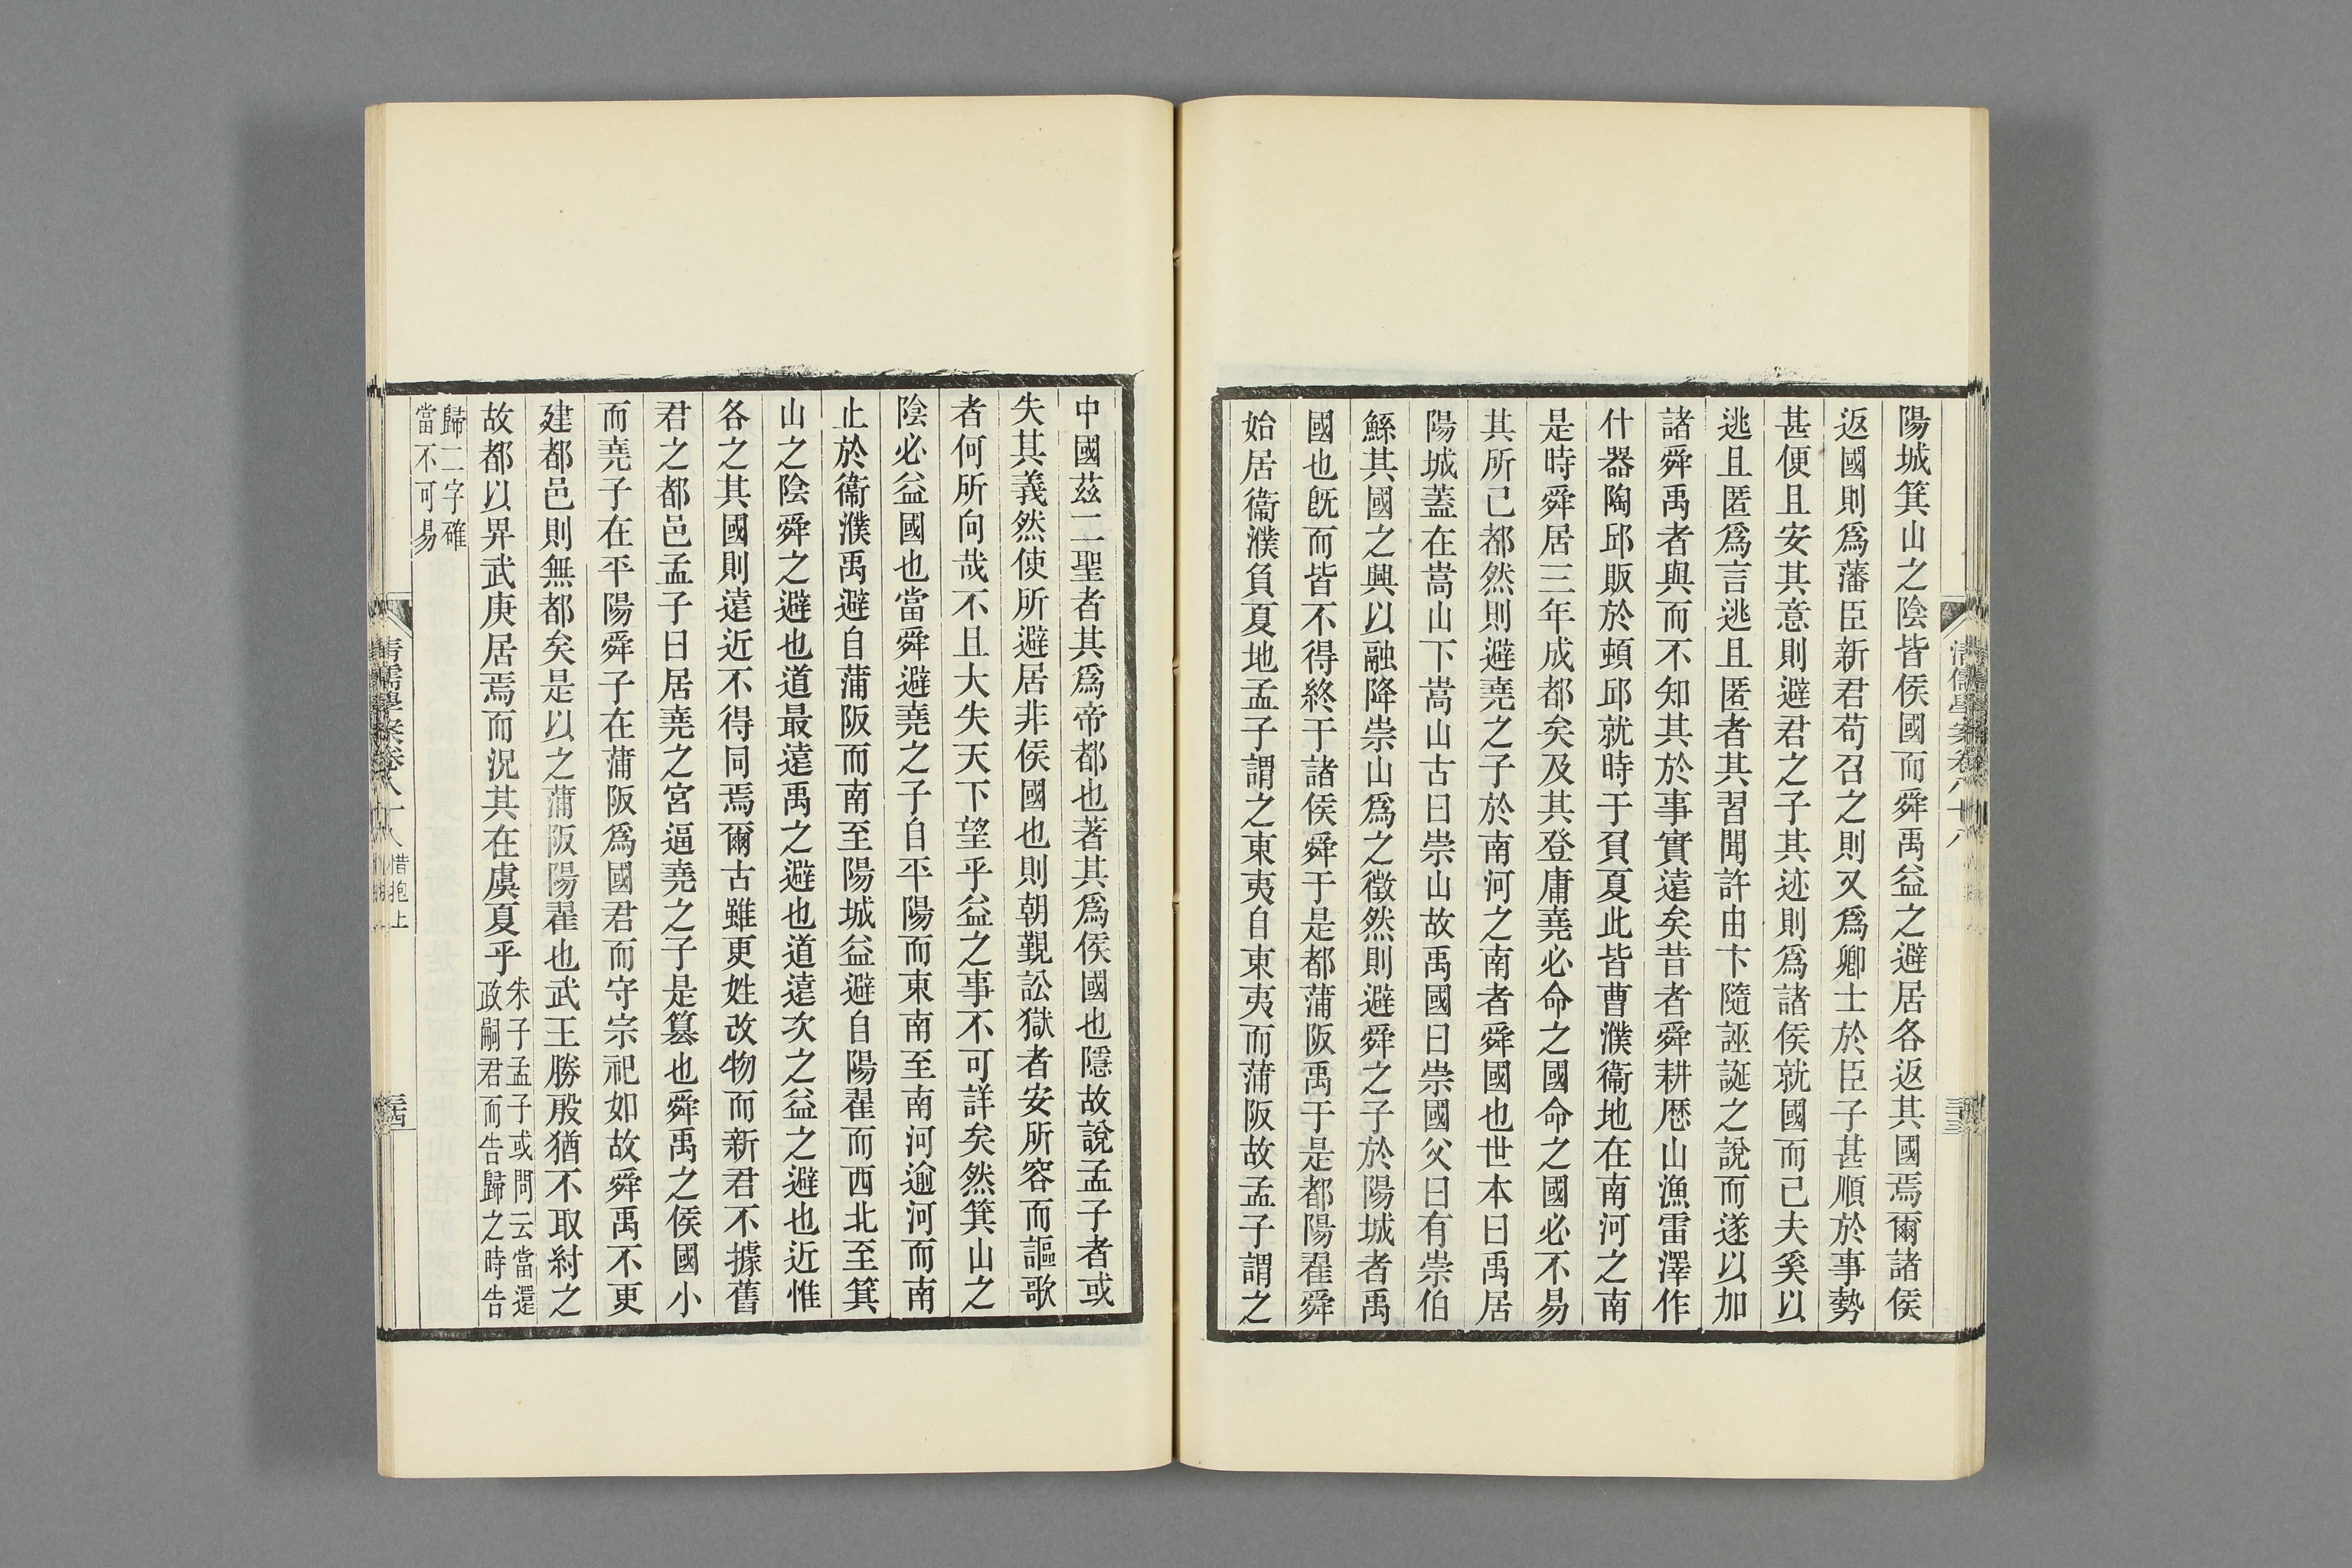 陽城箕山之陰皆侯國而舜禹益之避居各返其國焉爾諸侯
返國則爲藩臣新君苟召之則又爲卿士於臣子甚順於事勢
甚便且安其意則避君之子其迹則爲諸侯就國而已夫奚以
逃且匿爲言逃且匿者其習聞許由卞隨誣誕之說而遂以加
諸舜禹者與而不知其於事實遠矣昔者舜耕歷山漁雷澤作
什器陶邱販於頓邱就時于負夏此皆曹濮衞地在南河之南
是時舜居三年成都矣及其登庸堯必命之國命之國必不易
其所已都然則避堯之子於南河之南者舜國也世本曰禹居
陽城蓋在嵩山下嵩山古曰崇山故禹國曰崇國父曰有崇伯
鯀其國之興以融降崇山爲之徵然則避舜之子於陽城者禹
國也旣而皆不得終于諸侯舜于是都蒲阪禹于是都陽翟舜
始居衞濮負夏地孟子謂之東夷自東夷而蒲阪故孟子謂之
中國茲二聖者其爲帝都也著其爲侯國也隱故說孟子者或
失其義然使所避居非侯國也則朝覲訟獄者安所容而謳歌
者何所向哉不且大失天下望乎益之事不可詳矣然箕山之
陰必益國也當舜避堯之子自平陽而東南至南河逾河而南
止於衞濮禹避自蒲阪而南至陽城益避自陽翟而西北至箕
山之陰舜之避也道最遠禹之避也道遠次之益之避也近惟
各之其國則遠近不得同焉爾古雖更姓改物而新君不據舊
君之都邑孟子曰居堯之宮逼堯之子是篡也舜禹之侯國小
而堯子在平陽舜子在蒲阪爲國君而守宗祀如故舜禹不更
建都邑則無都矣是以之蒲阪陽翟也武王勝殷猶不取紂之
故都以畀武庚居焉而況其在虞夏乎
朱子孟子或問云當還
政嗣君而告歸之時告
歸二字確
當不可易
清儒學案卷八十八
惜抱上
三十四